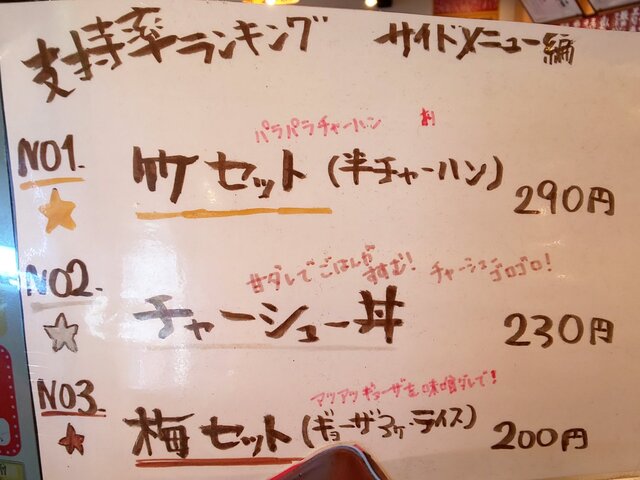 支持率ランキング サイドメニュー編
パラパラチャーハン
NO1. 竹セット(半チャーハン) 290円
甘ダレでごはんがすすむ! チャーシューゴロゴロ!
NO2. チャーシュー丼 230円
アツアツギョーザを味噌ダレで!
NO3. 梅セット(ギョーザ3ヶ・ライス) 200円